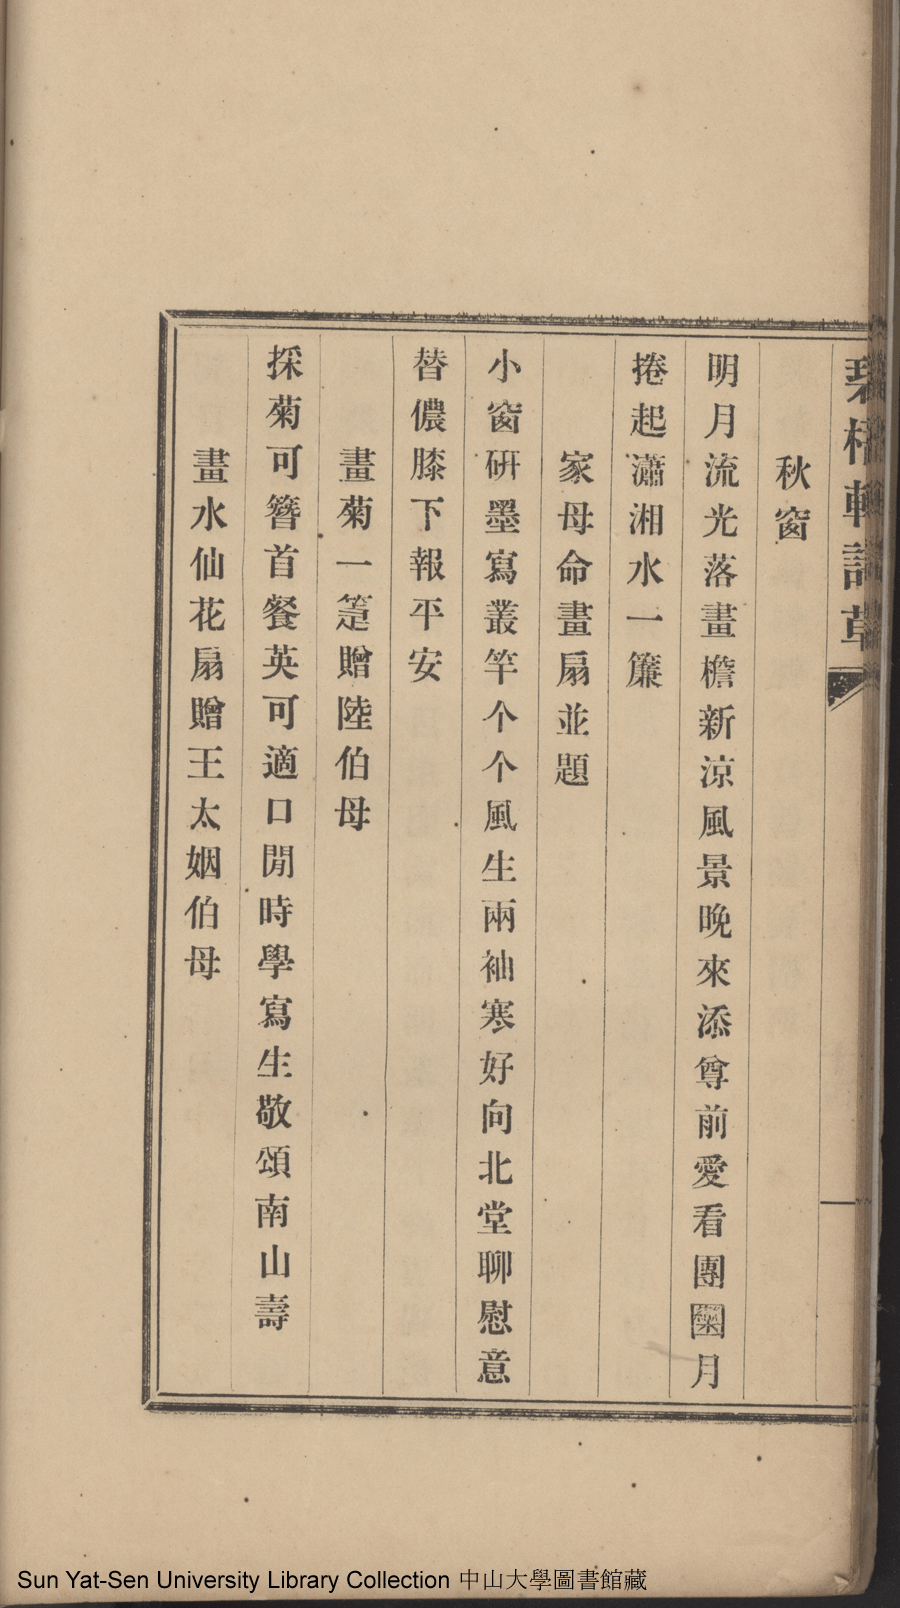 秋窗
明月流光落畫檐新涼風景晚來添尊前愛看團圞月
捲起瀟湘水一簾
家母命畫扇並題
小窗研墨寫叢竿个个風生兩袖寒好向北堂聊慰意
替儂膝下報平安
畫菊一箑贈陸伯母
採菊可簪首餐英可適口閒時學寫生敬頌南山壽
畫水仙花扇贈王太姻伯母
Sun Yat-Sen University Library Collection 中山大學圖書館藏